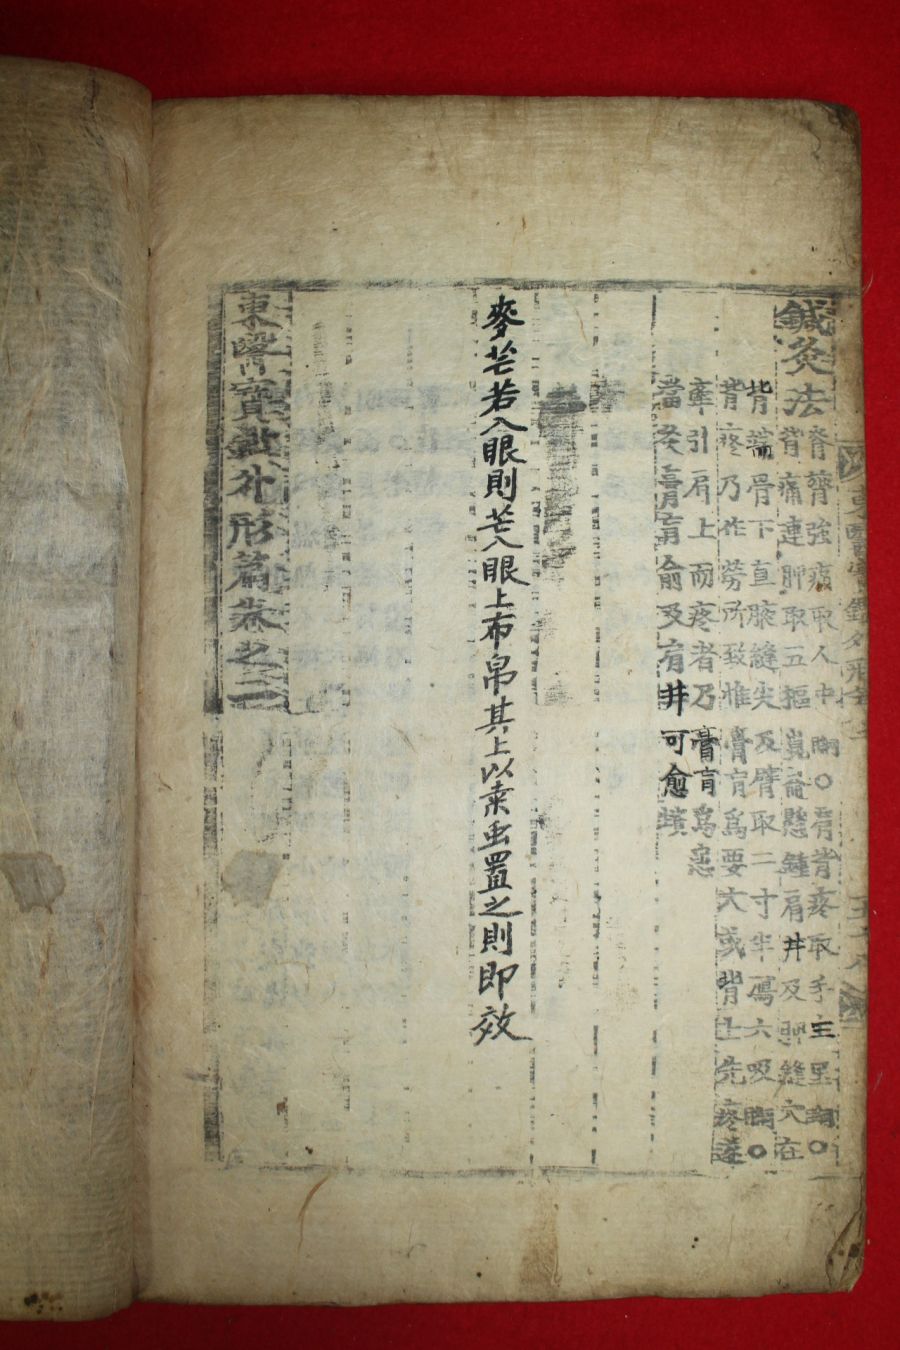 鍼灸法
脊膂強痛取人中綱目○肩背疼取手三里綱目○
背痛連胛取五樞崑崙懸鍾肩井及胛縫穴在
背端骨下直腋縫尖及臂取二寸半瀉六吸綱目○
背疼乃作勞所致惟膏肓爲要穴或背上先疼遂
牽引肩上而疼者乃膏肓爲患
當灸膏肓兪及肩井可愈
麥芒若入眼則芒入眼上布帛其上以桒虫置之則即效
東醫寶鑑外形篇卷之二